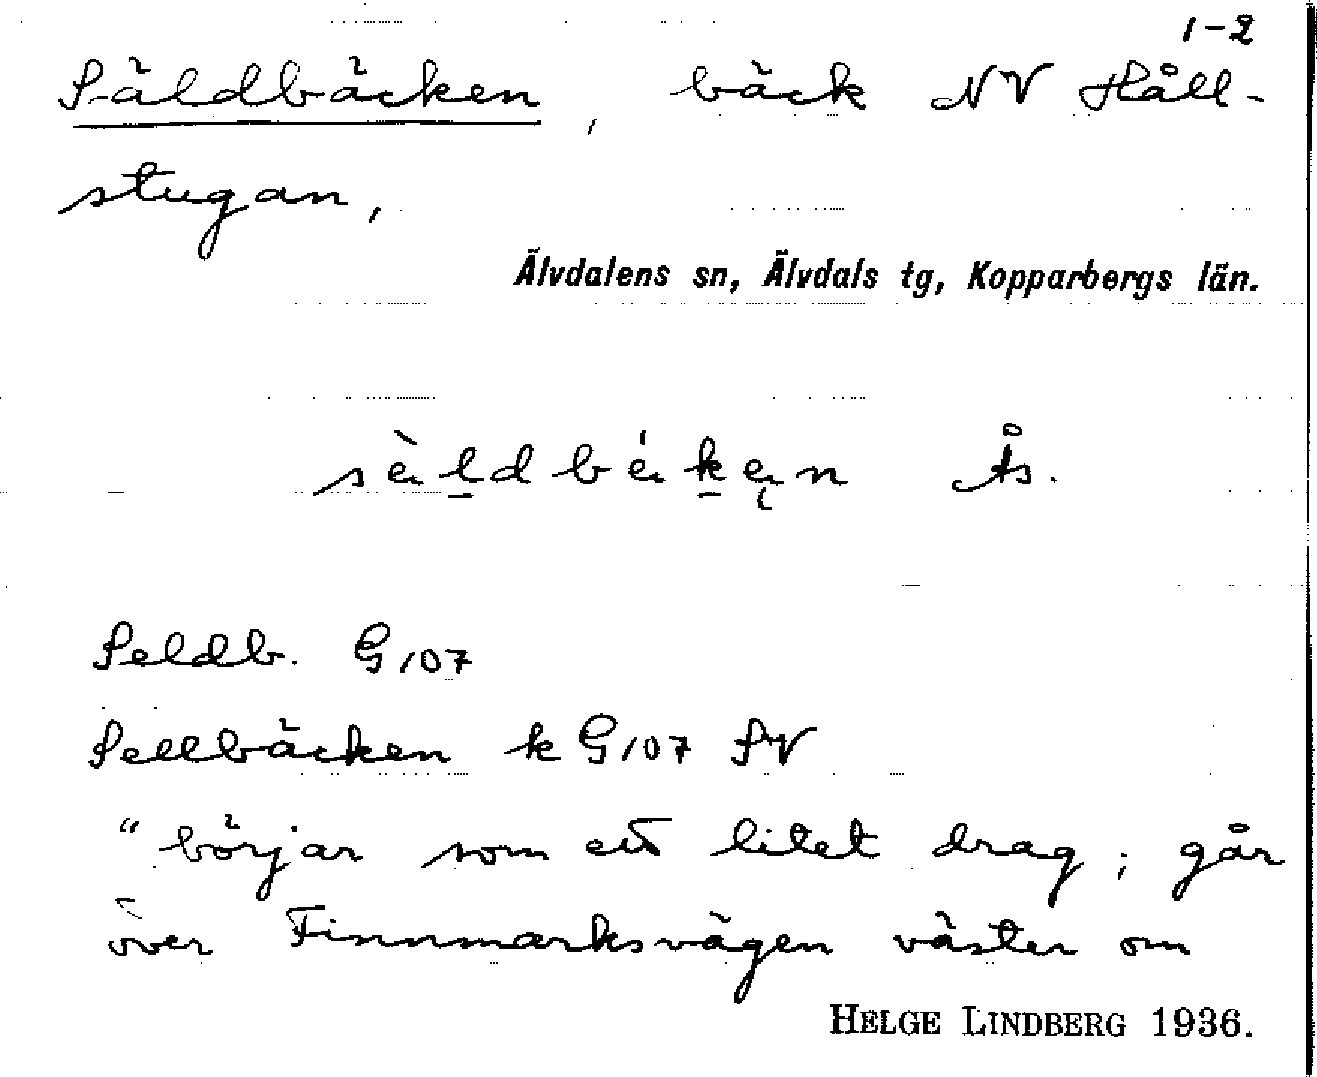 1-2
Säldbäcken, bäck NV Håll-
stugan,
Älvdalens sn, Älvdals tg, Kopparbergs län.
Ås.
Seldb. G107
Sellbäcken k G107 SV
"börjar som ett litet drag; går
över Finnmarksvägen väster om
HELGE LINDBERG 1936.